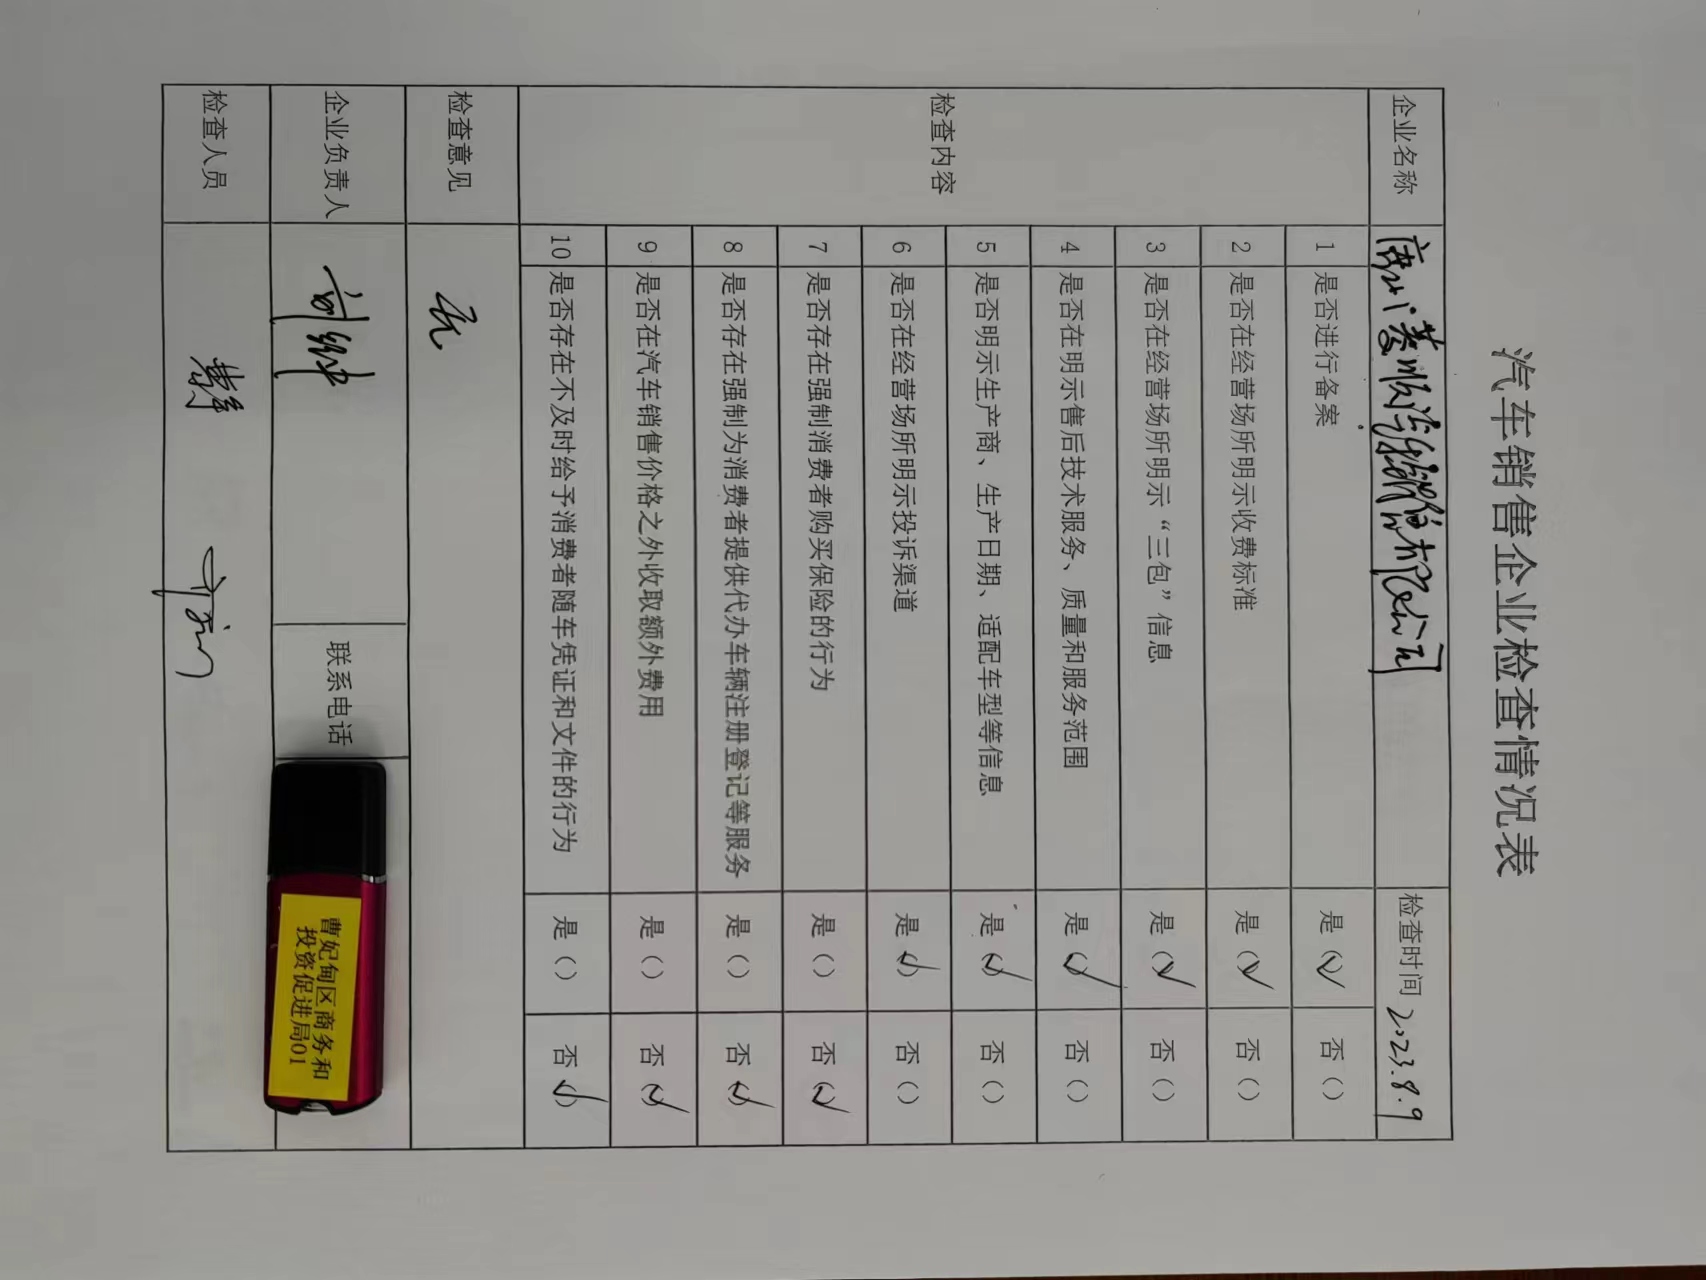 汽车销售企业检查情况表
企业名称 检查时间 2023.8.9
检查内容
1 是否进行备案 是(√) 否()
2 是否在经营场所明示收费标准 是(√) 否()
3 是否在经营场所明示“三包”信息 是(√) 否()
4 是否在明示售后技术服务、质量和服务范围 是(√) 否()
5 是否明示生产商、生产日期、适配车型等信息 是(√) 否()
6 是否在经营场所明示投诉渠道 是(√) 否()
7 是否存在强制消费者购买保险的行为 是() 否(√)
8 是否存在强制为消费者提供代办车辆注册登记等服务 是() 否(√)
9 是否在汽车销售价格之外收取额外费用 是() 否(√)
10 是否存在不及时给予消费者随车凭证和文件的行为 是() 否(√)
检查意见 无
企业负责人 联系电话
曹妃甸区商务和
投资促进局01
检查人员